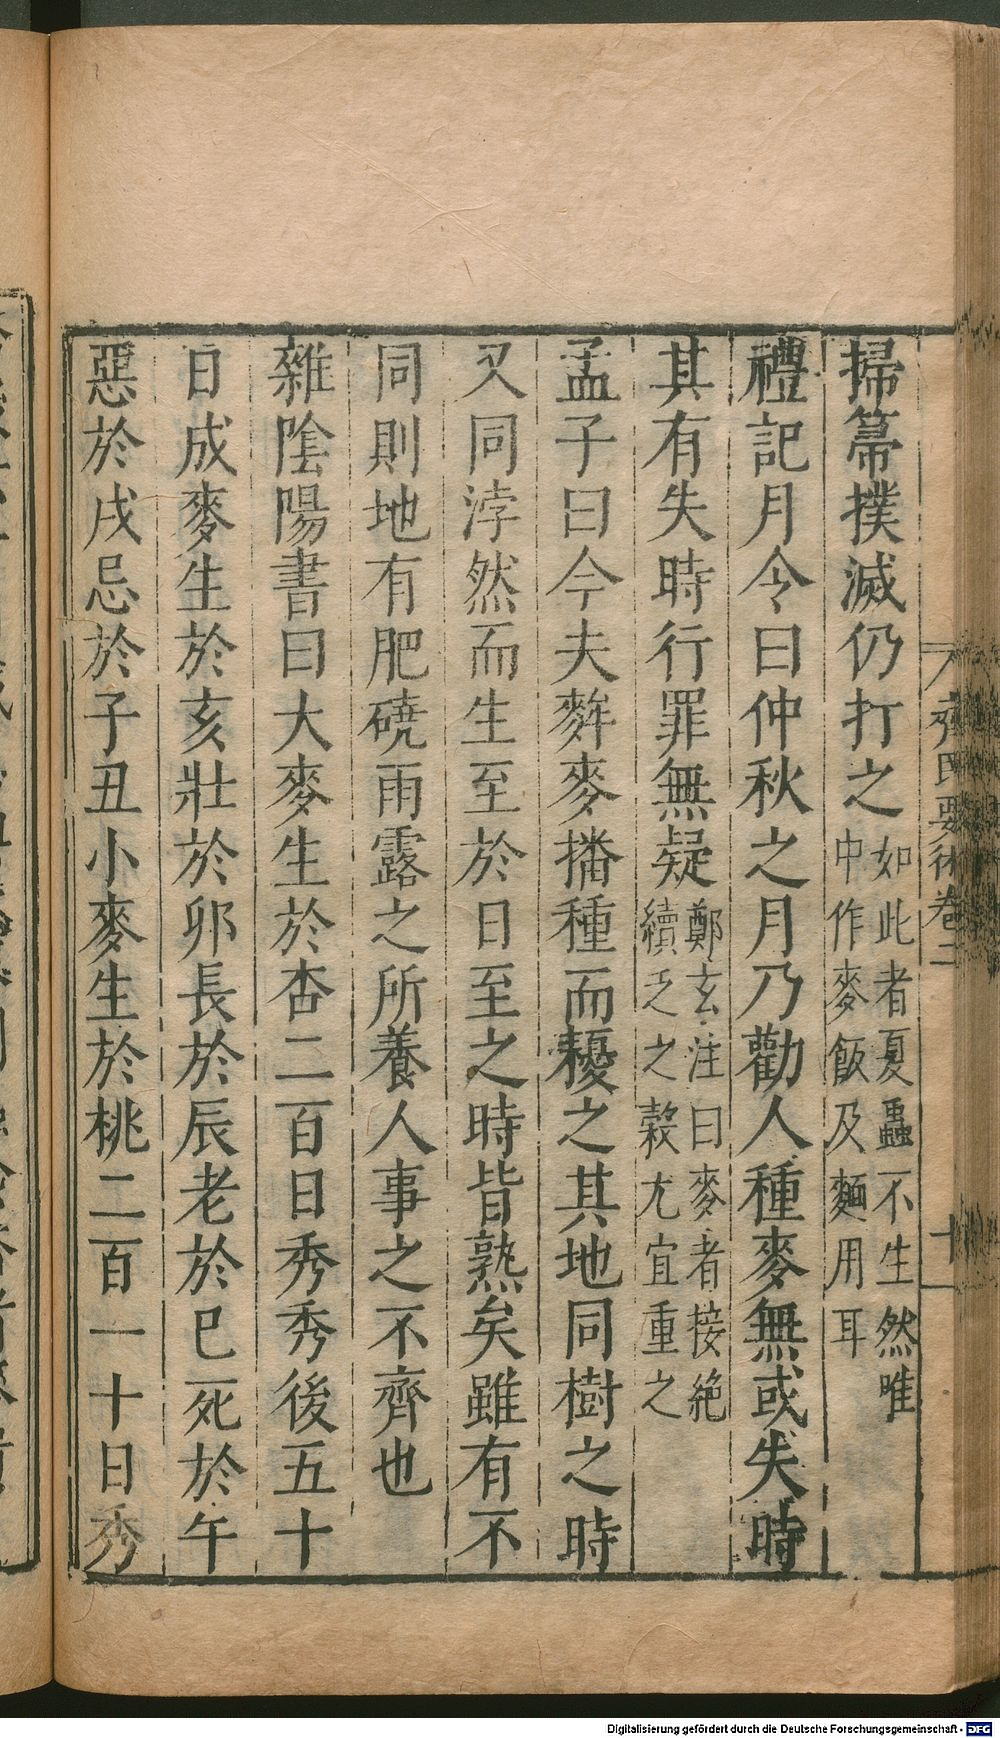 掃箒撲滅仍打之如此者夏蟲不生然唯中作麥飯及麵用耳
禮記月令曰仲秋之月乃勸人種麥無或失時
其有失時行罪無疑鄭玄注曰麥者接絶續乏之穀尤宜重之
孟子曰今夫麰麥播種而耰之其地同樹之時
又同浡然而生至於日至之時皆熟矣雖有不
同則地有肥磽雨露之所養人事之不齊也
雜陰陽書曰大麥生於杏二百日秀秀後五十
日成麥生於亥壯於卯長於辰老於巳死於午
惡於戌忌於子丑小麥生於桃二百一十日秀
齊民要術卷二
十
Digitalisierung gefördert durch die Deutsche Forschungsgemeinschaft - DFG